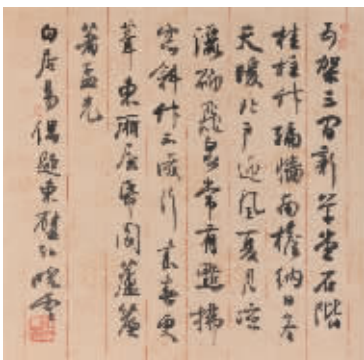 五架三間新草堂石階
桂柱竹編墻南檐納日冬
天暖北戶迎風夏月涼
砌飛泉常有點拂
窗斜竹不成行來春更
葺東廂屋紙閣蘆簾
著孟光
白居易偶題東壁